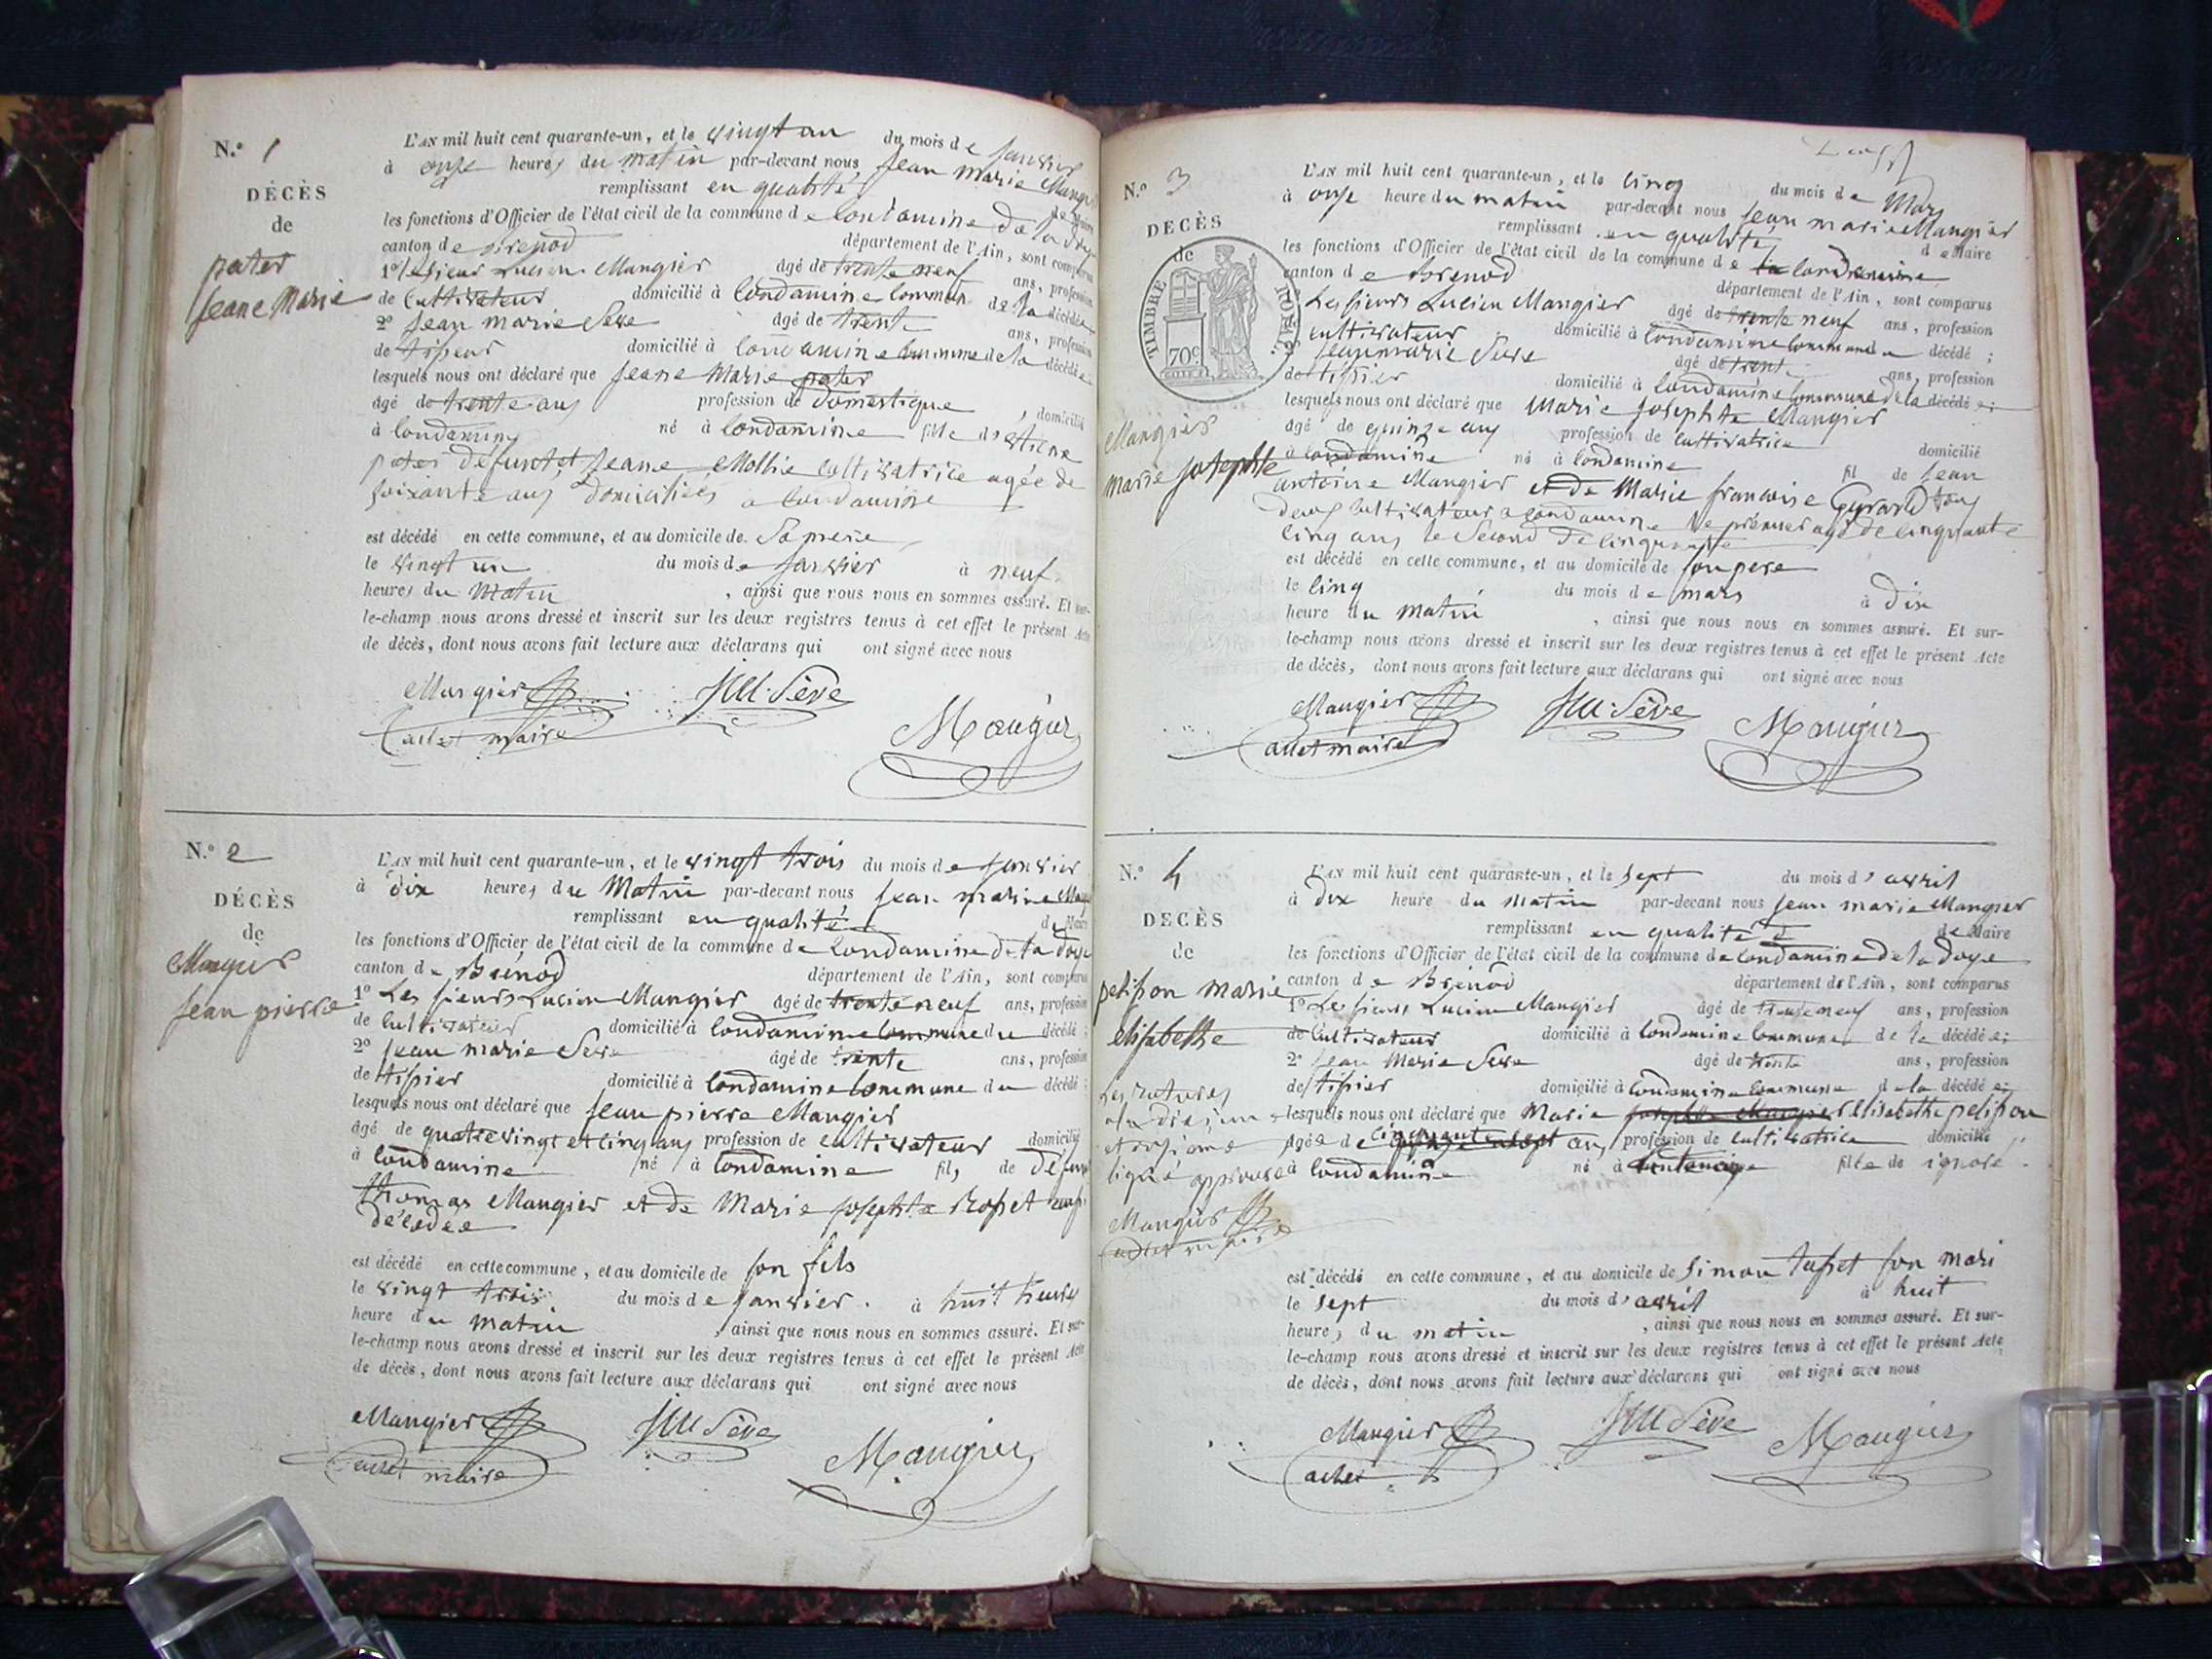 N.º 1
DÉCÈS
de
pater
Jeane Marie
L'AN mil huit cent quarante-un, et le vingt un du mois de Janvier
à onze heures du matin par-devant nous Jean Marie Mangier
remplissant en qualité de Maire
les fonctions d'Officier de l'état civil de la commune de Condamine de la doye
canton de Brenod département de l'Ain, sont comparus
1º le sieur Lucien Mangier âgé de trente neuf ans, profession
de Cultivateur domicilié à Condamine Commune de la décédée
2º Jean marie Seve âgé de trente ans, profession
de tisseur domicilié à Condamine Commune de la décédée
lesquels nous ont déclaré que Jeane Marie pater
âgé de trente ans profession de Domestique, domicilié
à Condamine né à Condamine fille d'Etiene
pater défunt et Jeane Mollie Cultivatrice agée de
soixante ans Domiciliés a Condamine
est décédé en cette commune, et au domicile de Sa mere
le vingt un du mois de Janvier à neuf
heures du Matin, ainsi que nous nous en sommes assuré. Et sur-
le-champ nous avons dressé et inscrit sur les deux registres tenus à cet effet le présent Acte
de décès, dont nous avons fait lecture aux déclarans qui ont signé avec nous
Mangier JM. Sève
maire Maugier
N.º 2
DÉCÈS
de
Mangier
Jean pierre
L'AN mil huit cent quarante-un, et le vingt trois du mois de Janvier
à dix heures du Matin par-devant nous Jean marie Mangier
remplissant en qualité de Maire
les fonctions d'Officier de l'état civil de la commune de Condamine de la doye
canton de Brénod département de l'Ain, sont comparus
1º Les sieurs Lucien Mangier âgé de trente neuf ans, profession
de Cultivateur domicilié à Condamine Commune du décédé;
2º Jean marie Seve âgé de trente ans, profession
de tissier domicilié à Condamine Commune du décédé;
lesquels nous ont déclaré que Jean pierre Mangier
âgé de quatre vingt et cinq ans profession de Cultivateur domicilié
à Condamine né à Condamine fils de défunt
thomas Mangier et de Marie Josephte Rosset aussi
décédée
est décédé en cette commune, et au domicile de son fils
le vingt trois du mois de Janvier. à huit heures
heure du matin, ainsi que nous nous en sommes assuré. Et sur-
le-champ nous avons dressé et inscrit sur les deux registres tenus à cet effet le présent Acte
de décès, dont nous avons fait lecture aux déclarans qui ont signé avec nous
Mangier JM Sève
maire Maugier
N.º 3
DÉCÈS
de
TIMBRE ROYAL
70c
Mangier
marie Josephte
L'AN mil huit cent quarante-un, et le cinq du mois de Mars
à onze heure du matin par-devant nous Jean marie Mangier
remplissant en qualité de Maire
les fonctions d'Officier de l'état civil de la commune de la Condamine
canton de Brenod département de l'Ain, sont comparus
Les sieurs Lucien Mangier âgé de trente neuf ans, profession
cultivateur domicilié à Condamine Commune de décédé;
Jean marie Seve âgé de trente ans, profession
de tissier domicilié à Condamine Commune de la décédée;
lesquels nous ont déclaré que Marie Josephte Mangier
âgé de quinze ans profession de Cultivatrice domicilié
à Condamine né à Condamine fil de Jean
antoine Mangier et de Marie francoise Gyrard tous
deux Cultivateur a Condamine le premier agé de cinquante
cinq ans le Second de cinquante
est décédé en cette commune, et au domicile de son pere
le cinq du mois de mars à dix
heure du matin, ainsi que nous nous en sommes assuré. Et sur-
le-champ nous avons dressé et inscrit sur les deux registres tenus à cet effet le présent Acte
de décès, dont nous avons fait lecture aux déclarans qui ont signé avec nous
Mangier JM. Sève
maire Maugier
N.º 4
DÉCÈS
de
petison marie
elisabethe
Mangier
L'AN mil huit cent quarante-un, et le sept du mois d'avril
à dix heure du matin par-devant nous Jean marie Mangier
remplissant en qualité de Maire
les fonctions d'Officier de l'état civil de la commune de Condamine de la Doye
canton de Brénod département de l'Ain, sont comparus
1º Les sieurs Lucien Mangier âgé de trente neuf ans, profession
de Cultivateur domicilié à Condamine Commune de la décédée;
2º Jean Marie Seve âgé de trente ans, profession
de tissier domicilié à Condamine Commune de la décédée;
lesquels nous ont déclaré que Marie Josephte Mangier Elisabethe petison
âgée de cinquante sept ans, profession de Cultivatrice domicilié
à Condamine né à fille de ignoré
est décédé en cette commune, et au domicile de Simon tufset son mari
le sept du mois d'avril à huit
heures du matin, ainsi que nous nous en sommes assuré. Et sur-
le-champ nous avons dressé et inscrit sur les deux registres tenus à cet effet le présent Acte
de décès, dont nous avons fait lecture aux déclarans qui ont signé avec nous
Mangier JM Sève
Maugier